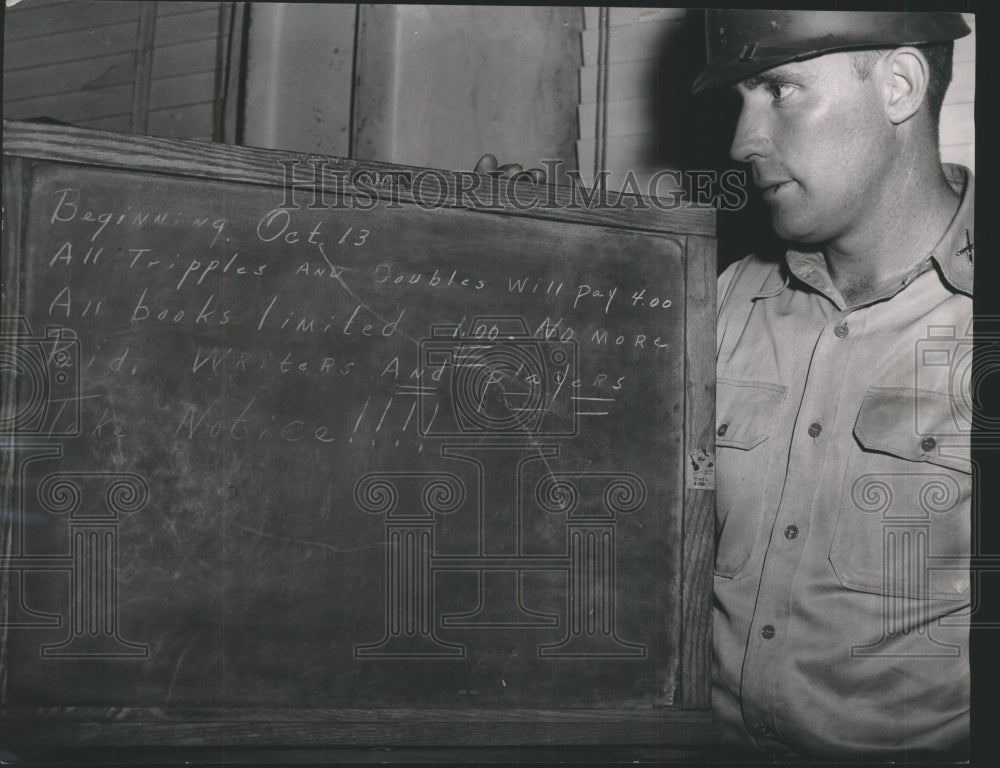 HISTORIC IMAGES
Beginning Oct. 13
All Tripples And Doubles Will pay 4.00
All books limited 1.00. No more
Paid. Writers And players
Take Notice!!!!